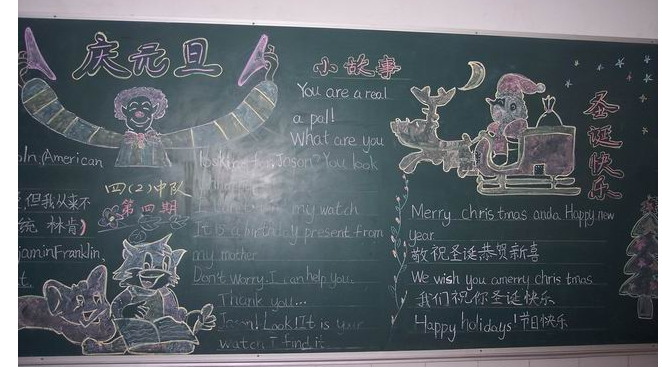 庆元旦
oln, American
但我从来不
林肯)
jaminFranklin,
四(2)中队
第四期
小故事
You are a real
a pal!
What are you
Jason? You look
my watch
It is a birthday present from
my mother
Don't worry. I can help you.
Thank you...
Jason! Look! It is your
watch I find it.
圣诞快乐
Merry chris tmas anda Happy new
year
敬祝圣诞恭贺新喜
We wish you amerry chris tmas
我们祝你圣诞快乐
Happy holidays! 节日快乐